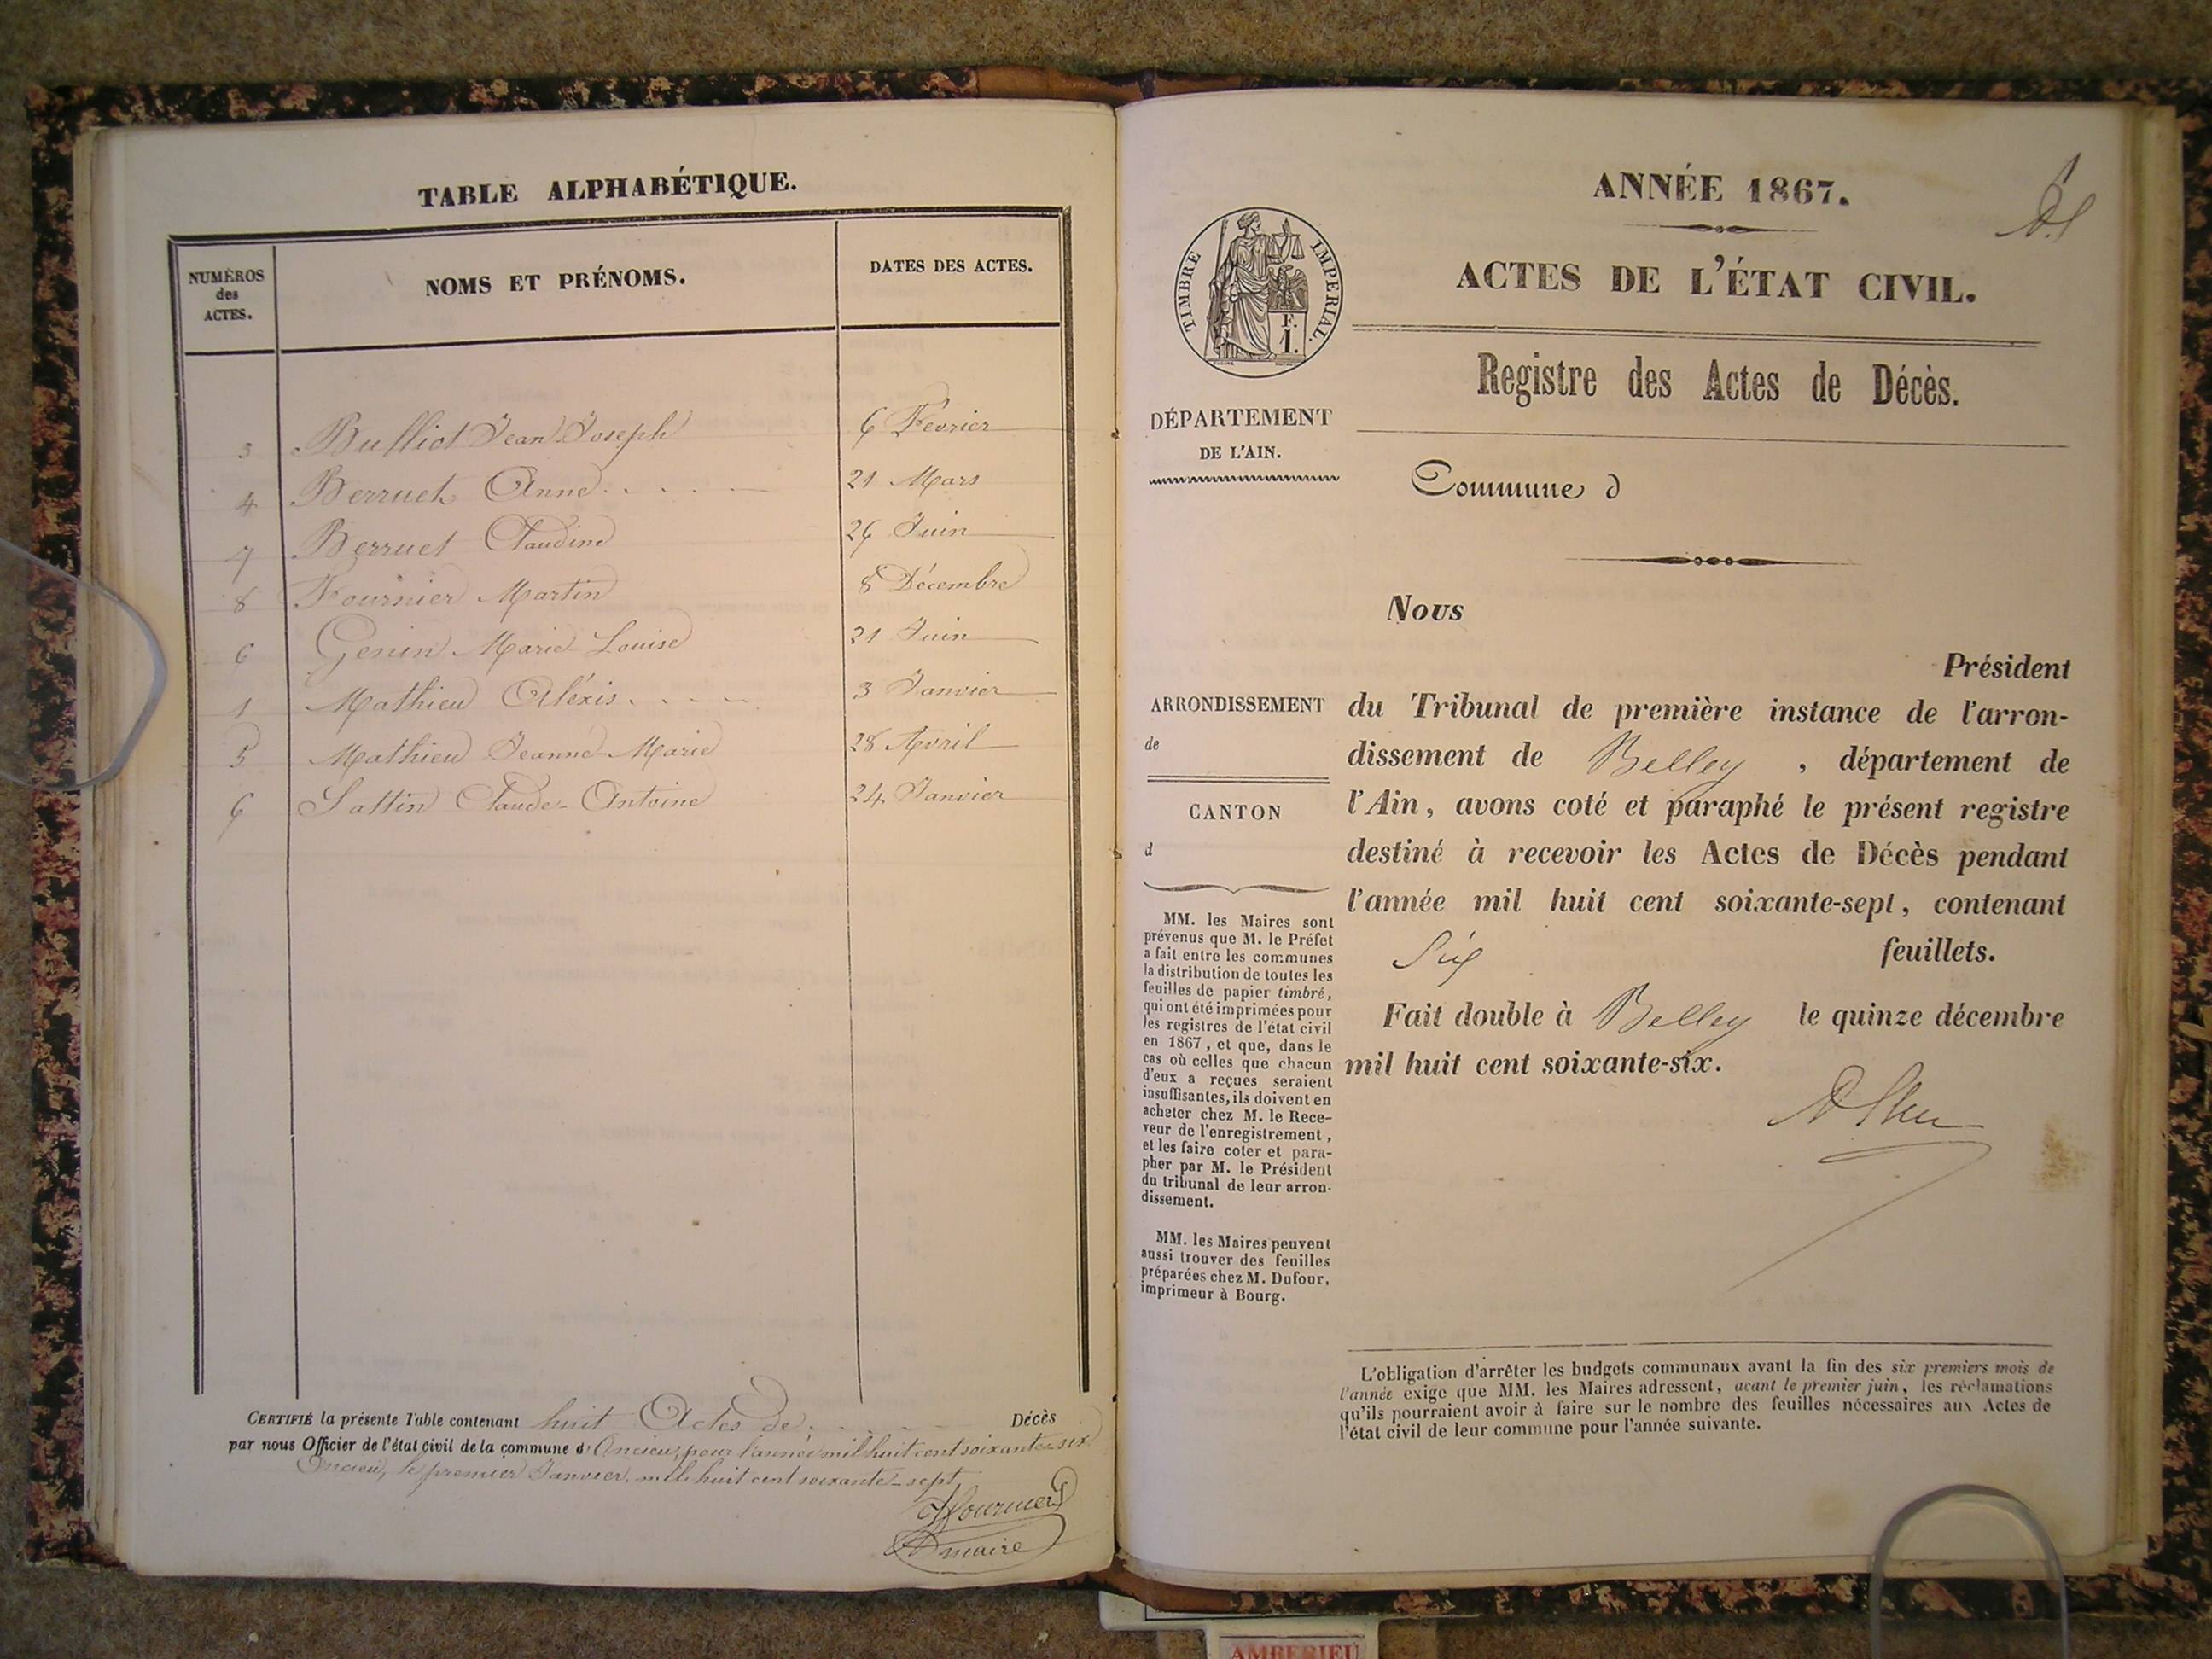 TABLE ALPHABÉTIQUE.
NUMÉROS
des
ACTES.
NOMS ET PRÉNOMS.
DATES DES ACTES.
3 Bulliot Jean Joseph 6 Fevrier
4 Berruet Anne 21 Mars
7 Berruet Claudine 26 Juin
8 Fournier Martin 8 Décembre
6 Genin Marie Louise 21 Juin
1 Mathieu Aléxis 3 Janvier
5 Mathieu Jeanne-Marie 28 Avril
Claude-Antoine 24 Janvier
CERTIFIÉ la présente Table contenant huit Actes de Décès
par nous Officier de l'état civil de la commune d' pour l'année mil huit cent soixante-six
le premier Janvier mil huit cent soixante-sept
maire
ANNÉE 1867.
ACTES DE L'ÉTAT CIVIL.
TIMBRE IMPERIAL.
F.
1.
Registre des Actes de Décès.
DÉPARTEMENT
DE L'AIN.
Commune d
Nous
Président
ARRONDISSEMENT
de
CANTON
d
du Tribunal de première instance de l'arron-
dissement de Belley , département de
l'Ain, avons coté et paraphé le présent registre
destiné à recevoir les Actes de Décès pendant
l'année mil huit cent soixante-sept, contenant
Six feuillets.
Fait double à Belley le quinze décembre
mil huit cent soixante-six.
MM. les Maires sont
prévenus que M. le Préfet
a fait entre les communes
la distribution de toutes les
feuilles de papier timbré,
qui ont été imprimées pour
les registres de l'état civil
en 1867, et que, dans le
cas où celles que chacun
d'eux a reçues seraient
insuffisantes, ils doivent en
acheter chez M. le Rece-
veur de l'enregistrement,
et les faire coter et para-
pher par M. le Président
du tribunal de leur arron-
dissement.
MM. les Maires peuvent
aussi trouver des feuilles
préparées chez M. Dufour,
imprimeur à Bourg.
L'obligation d'arrêter les budgets communaux avant la fin des six premiers mois de
l'année exige que MM. les Maires adressent, avant le premier juin, les réclamations
qu'ils pourraient avoir à faire sur le nombre des feuilles nécessaires aux Actes de
l'état civil de leur commune pour l'année suivante.
AMBERIEU